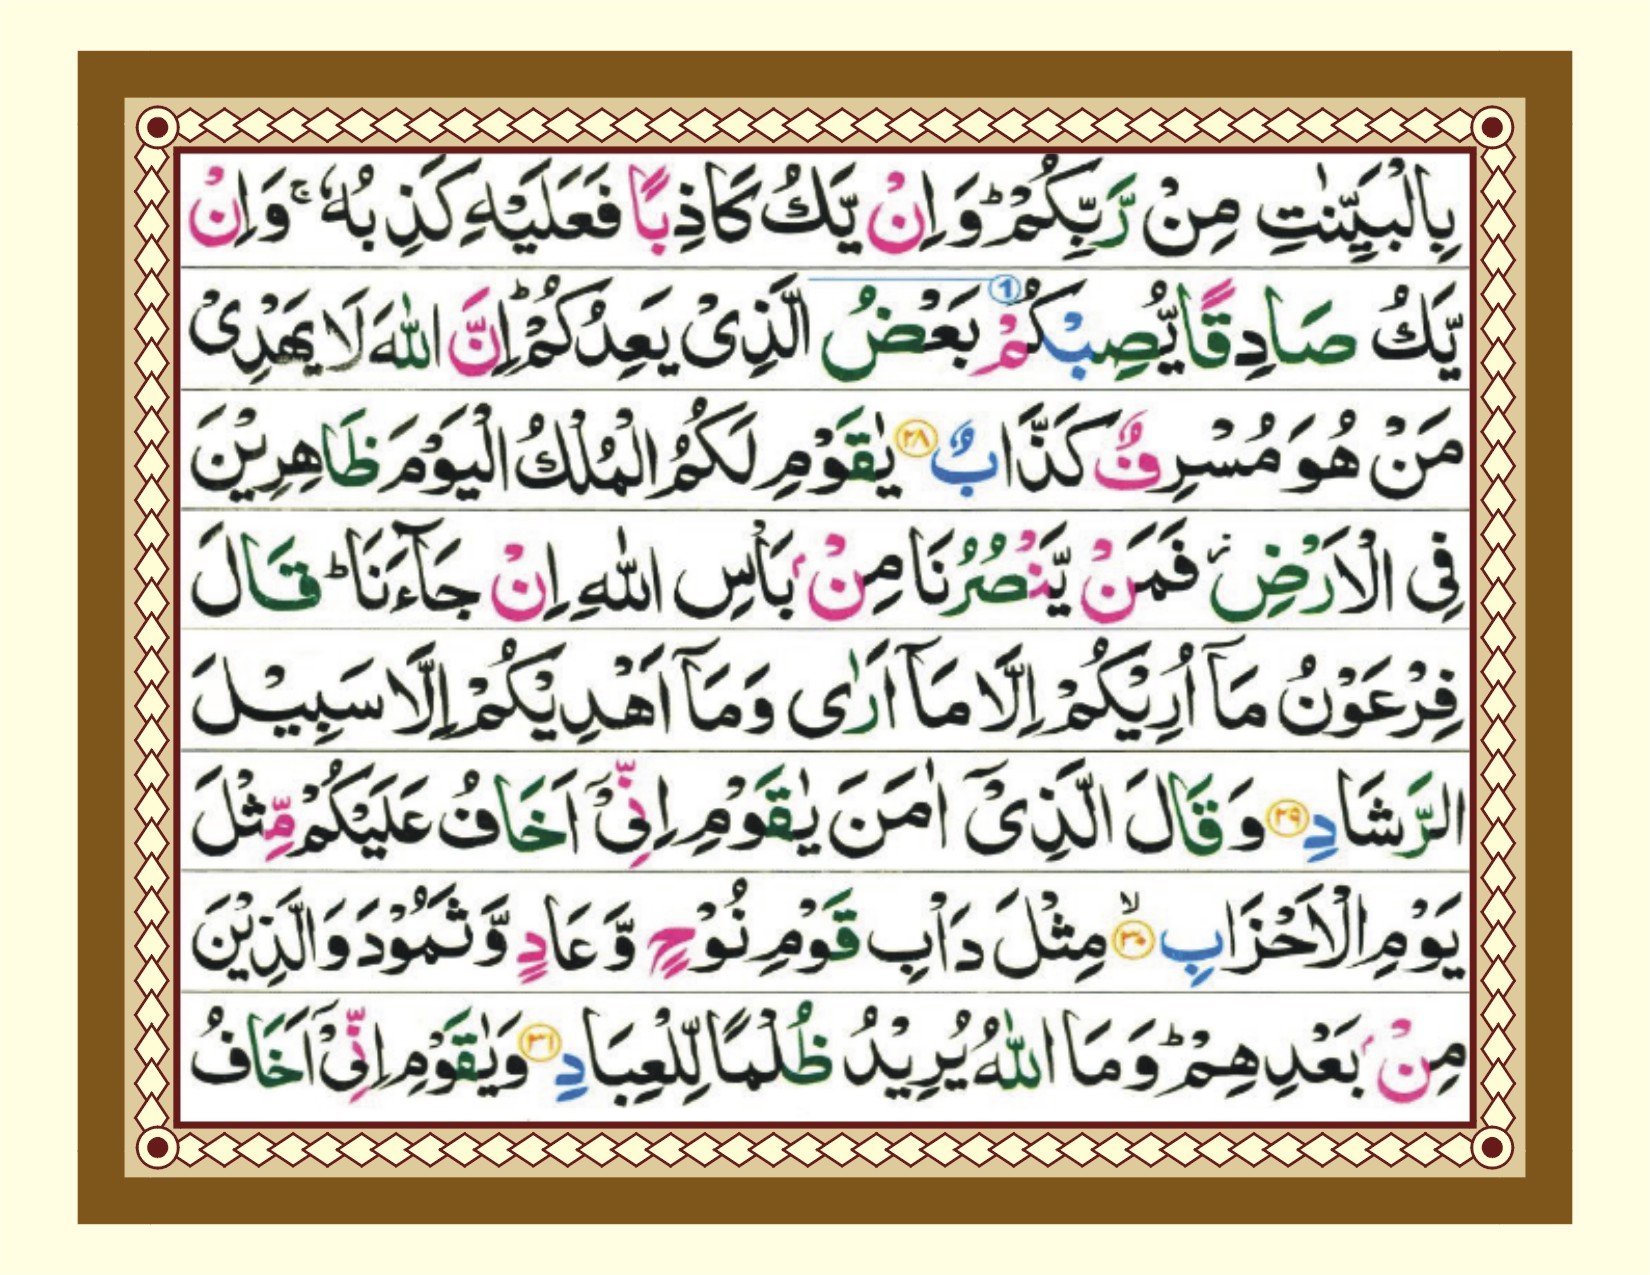 بِالْبَيِّنٰتِ مِنْ رَّبِّكُمْ ؕ وَ اِنْ يَّكُ كَاذِبًا فَعَلَيْهِ كَذِبُهٗ ۚ وَ اِنْ
يَّكُ صَادِقًا يُّصِبْكُمْ بَعْضُ الَّذِىْ يَعِدُكُمْ ؕ اِنَّ اللّٰهَ لَا يَهْدِىْ ①
مَنْ هُوَ مُسْرِفٌ كَذَّابٌ ﴿۲۸﴾ يٰقَوْمِ لَكُمُ الْمُلْكُ الْيَوْمَ ظَاهِرِيْنَ
فِى الْاَرْضِ ؗ فَمَنْ يَّنْصُرُنَا مِنْۢ بَاْسِ اللّٰهِ اِنْ جَآءَنَا ؕ قَالَ
فِرْعَوْنُ مَاۤ اُرِيْكُمْ اِلَّا مَاۤ اَرٰى وَمَاۤ اَهْدِيْكُمْ اِلَّا سَبِيْلَ
الرَّشَادِ ﴿۲۹﴾ وَ قَالَ الَّذِىْۤ اٰمَنَ يٰقَوْمِ اِنِّىْۤ اَخَافُ عَلَيْكُمْ مِّثْلَ
يَوْمِ الْاَحْزَابِ ۙ﴿۳۰﴾ مِثْلَ دَاْبِ قَوْمِ نُوْحٍ وَّ عَادٍ وَّ ثَمُوْدَ وَ الَّذِيْنَ
مِنْۢ بَعْدِهِمْ ؕ وَ مَا اللّٰهُ يُرِيْدُ ظُلْمًا لِّلْعِبَادِ ﴿۳۱﴾ وَ يٰقَوْمِ اِنِّىْۤ اَخَافُ